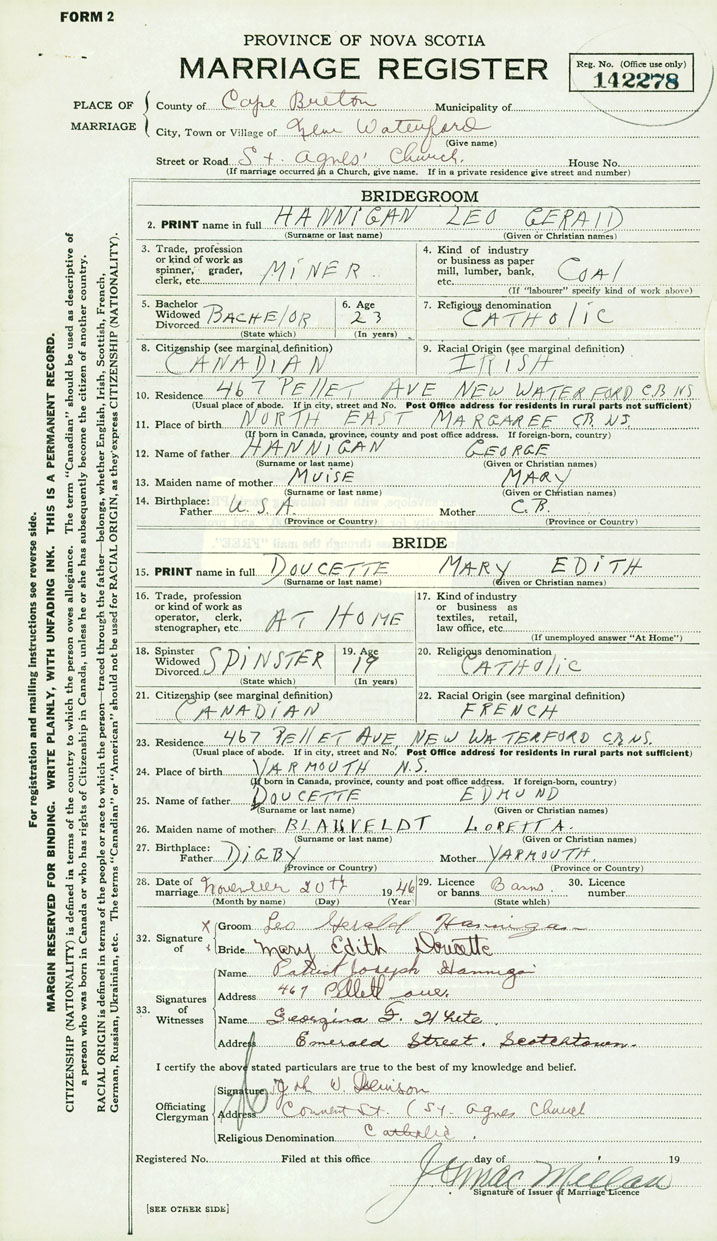 FORM 2
PROVINCE OF NOVA SCOTIA
MARRIAGE REGISTER
Reg. No. (Office use only)
142278
PLACE OF MARRIAGE
County of Cape Breton Municipality of
City, Town or Village of New Waterford
(Give name)
Street or Road St. Agnes' Church. House No.
(If marriage occurred in a Church, give name. If in a private residence give street and number)
BRIDEGROOM
2. PRINT name in full HANNIGAN LEO GERALD
(Surname or last name) (Given or Christian names)
3. Trade, profession or kind of work as spinner, grader, clerk, etc. MINER
4. Kind of industry or business as paper mill, lumber, bank, etc. COAL
(If "labourer" specify kind of work above)
5. Bachelor Widowed Divorced BACHELOR
(State which)
6. Age 23
(In years)
7. Religious denomination CATHOLIC
8. Citizenship (see marginal definition) CANADIAN
9. Racial Origin (see marginal definition) IRISH
10. Residence 467 PELLET AVE NEW WATERFORD C.B NS
(Usual place of abode. If in city, street and No. Post Office address for residents in rural parts not sufficient)
11. Place of birth NORTH EAST MARGAREE CB. NS.
(If born in Canada, province, county and post office address. If foreign-born, country)
12. Name of father HANNIGAN GEORGE
(Surname or last name) (Given or Christian names)
13. Maiden name of mother MUISE MARY
(Surname or last name) (Given or Christian names)
14. Birthplace: Father U.S.A Mother C.B.
(Province or Country) (Province or Country)
BRIDE
15. PRINT name in full DOUCETTE MARY EDITH
(Surname or last name) (Given or Christian names)
16. Trade, profession or kind of work as operator, clerk, stenographer, etc. AT HOME
17. Kind of industry or business as textiles, retail, law office, etc.
(If unemployed answer "At Home")
18. Spinster Widowed Divorced SPINSTER
(State which)
19. Age 19
(In years)
20. Religious denomination CATHOLIC
21. Citizenship (see marginal definition) CANADIAN
22. Racial Origin (see marginal definition) FRENCH
23. Residence 467 PELLET AVE, NEW WATERFORD CB NS.
(Usual place of abode. If in city, street and No. Post Office address for residents in rural parts not sufficient)
24. Place of birth YARMOUTH N.S.
(If born in Canada, province, county and post office address. If foreign-born, country)
25. Name of father DOUCETTE EDMUND
(Surname or last name) (Given or Christian names)
26. Maiden name of mother BLAUVELDT LORETTA.
(Surname or last name) (Given or Christian names)
27. Birthplace: Father DIGBY Mother YARMOUTH.
(Province or Country) (Province or Country)
28. Date of marriage November 20th 1946
(Month by name) (Day) (Year)
29. Licence or banns Banns.
(State which)
30. Licence number
32. Signature of
X Groom Leo Gerald Hannigan
Bride Mary Edith Doucette
33. Signatures of Witnesses
Name Patrick Joseph Hannigan
Address 467 Pellett ave.
Name Georgina F. White.
Address Emerald Street. Scotchtown.
I certify the above stated particulars are true to the best of my knowledge and belief.
Officiating Clergyman
Signature W.
Address St. (St. Agnes Church
Religious Denomination Catholic.
Registered No. Filed at this office day of 19
Mac Millan
Signature of Issuer of Marriage Licence
[SEE OTHER SIDE]
For registration and mailing instructions see reverse side.
MARGIN RESERVED FOR BINDING. WRITE PLAINLY, WITH UNFADING INK. THIS IS A PERMANENT RECORD.
CITIZENSHIP (NATIONALITY) is defined in terms of the country to which the person owes allegiance. The term "Canadian" should be used as descriptive of
a person who was born in Canada or who has rights of Citizenship in Canada, unless he or she has subsequently become the citizen of another country.
RACIAL ORIGIN is defined in terms of the people or race to which the person—traced through the father—belongs, whether English, Irish, Scottish, French,
German, Russian, Ukrainian, etc. The terms "Canadian" or "American" should not be used for RACIAL ORIGIN, as they express CITIZENSHIP (NATIONALITY).